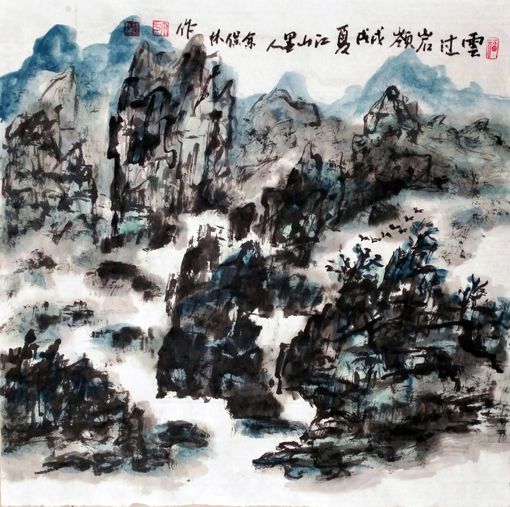 雲过岩岭戊戌夏江山墨人余保林作